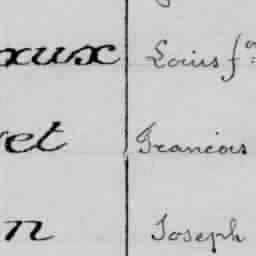 xux Louis fois
et Francois
n Joseph